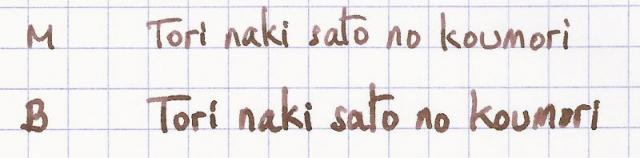 M Tori naki sato no koumori
B Tori naki sato no koumori